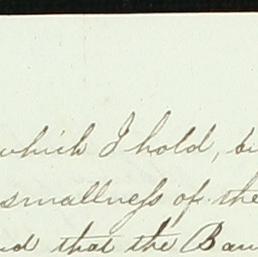 which I hold, bu
smallness of the
nd that the Ban